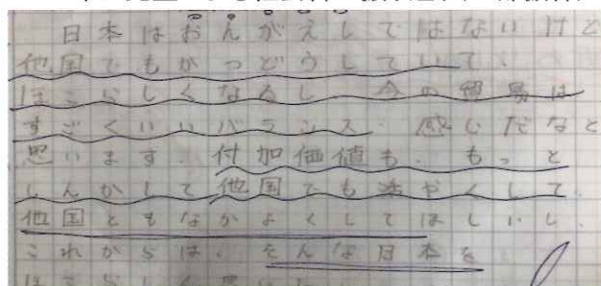 日本はおんがえしではないけど
他国でもかつどうしていて、
ほこらしくなるし、今の貿易は
すごくいいバランス、感じだなと
思います。付加価値も、もっと
しんかして他国でも活やくして、
他国ともなかよくしてほしいし、
これからは、そんな日本を